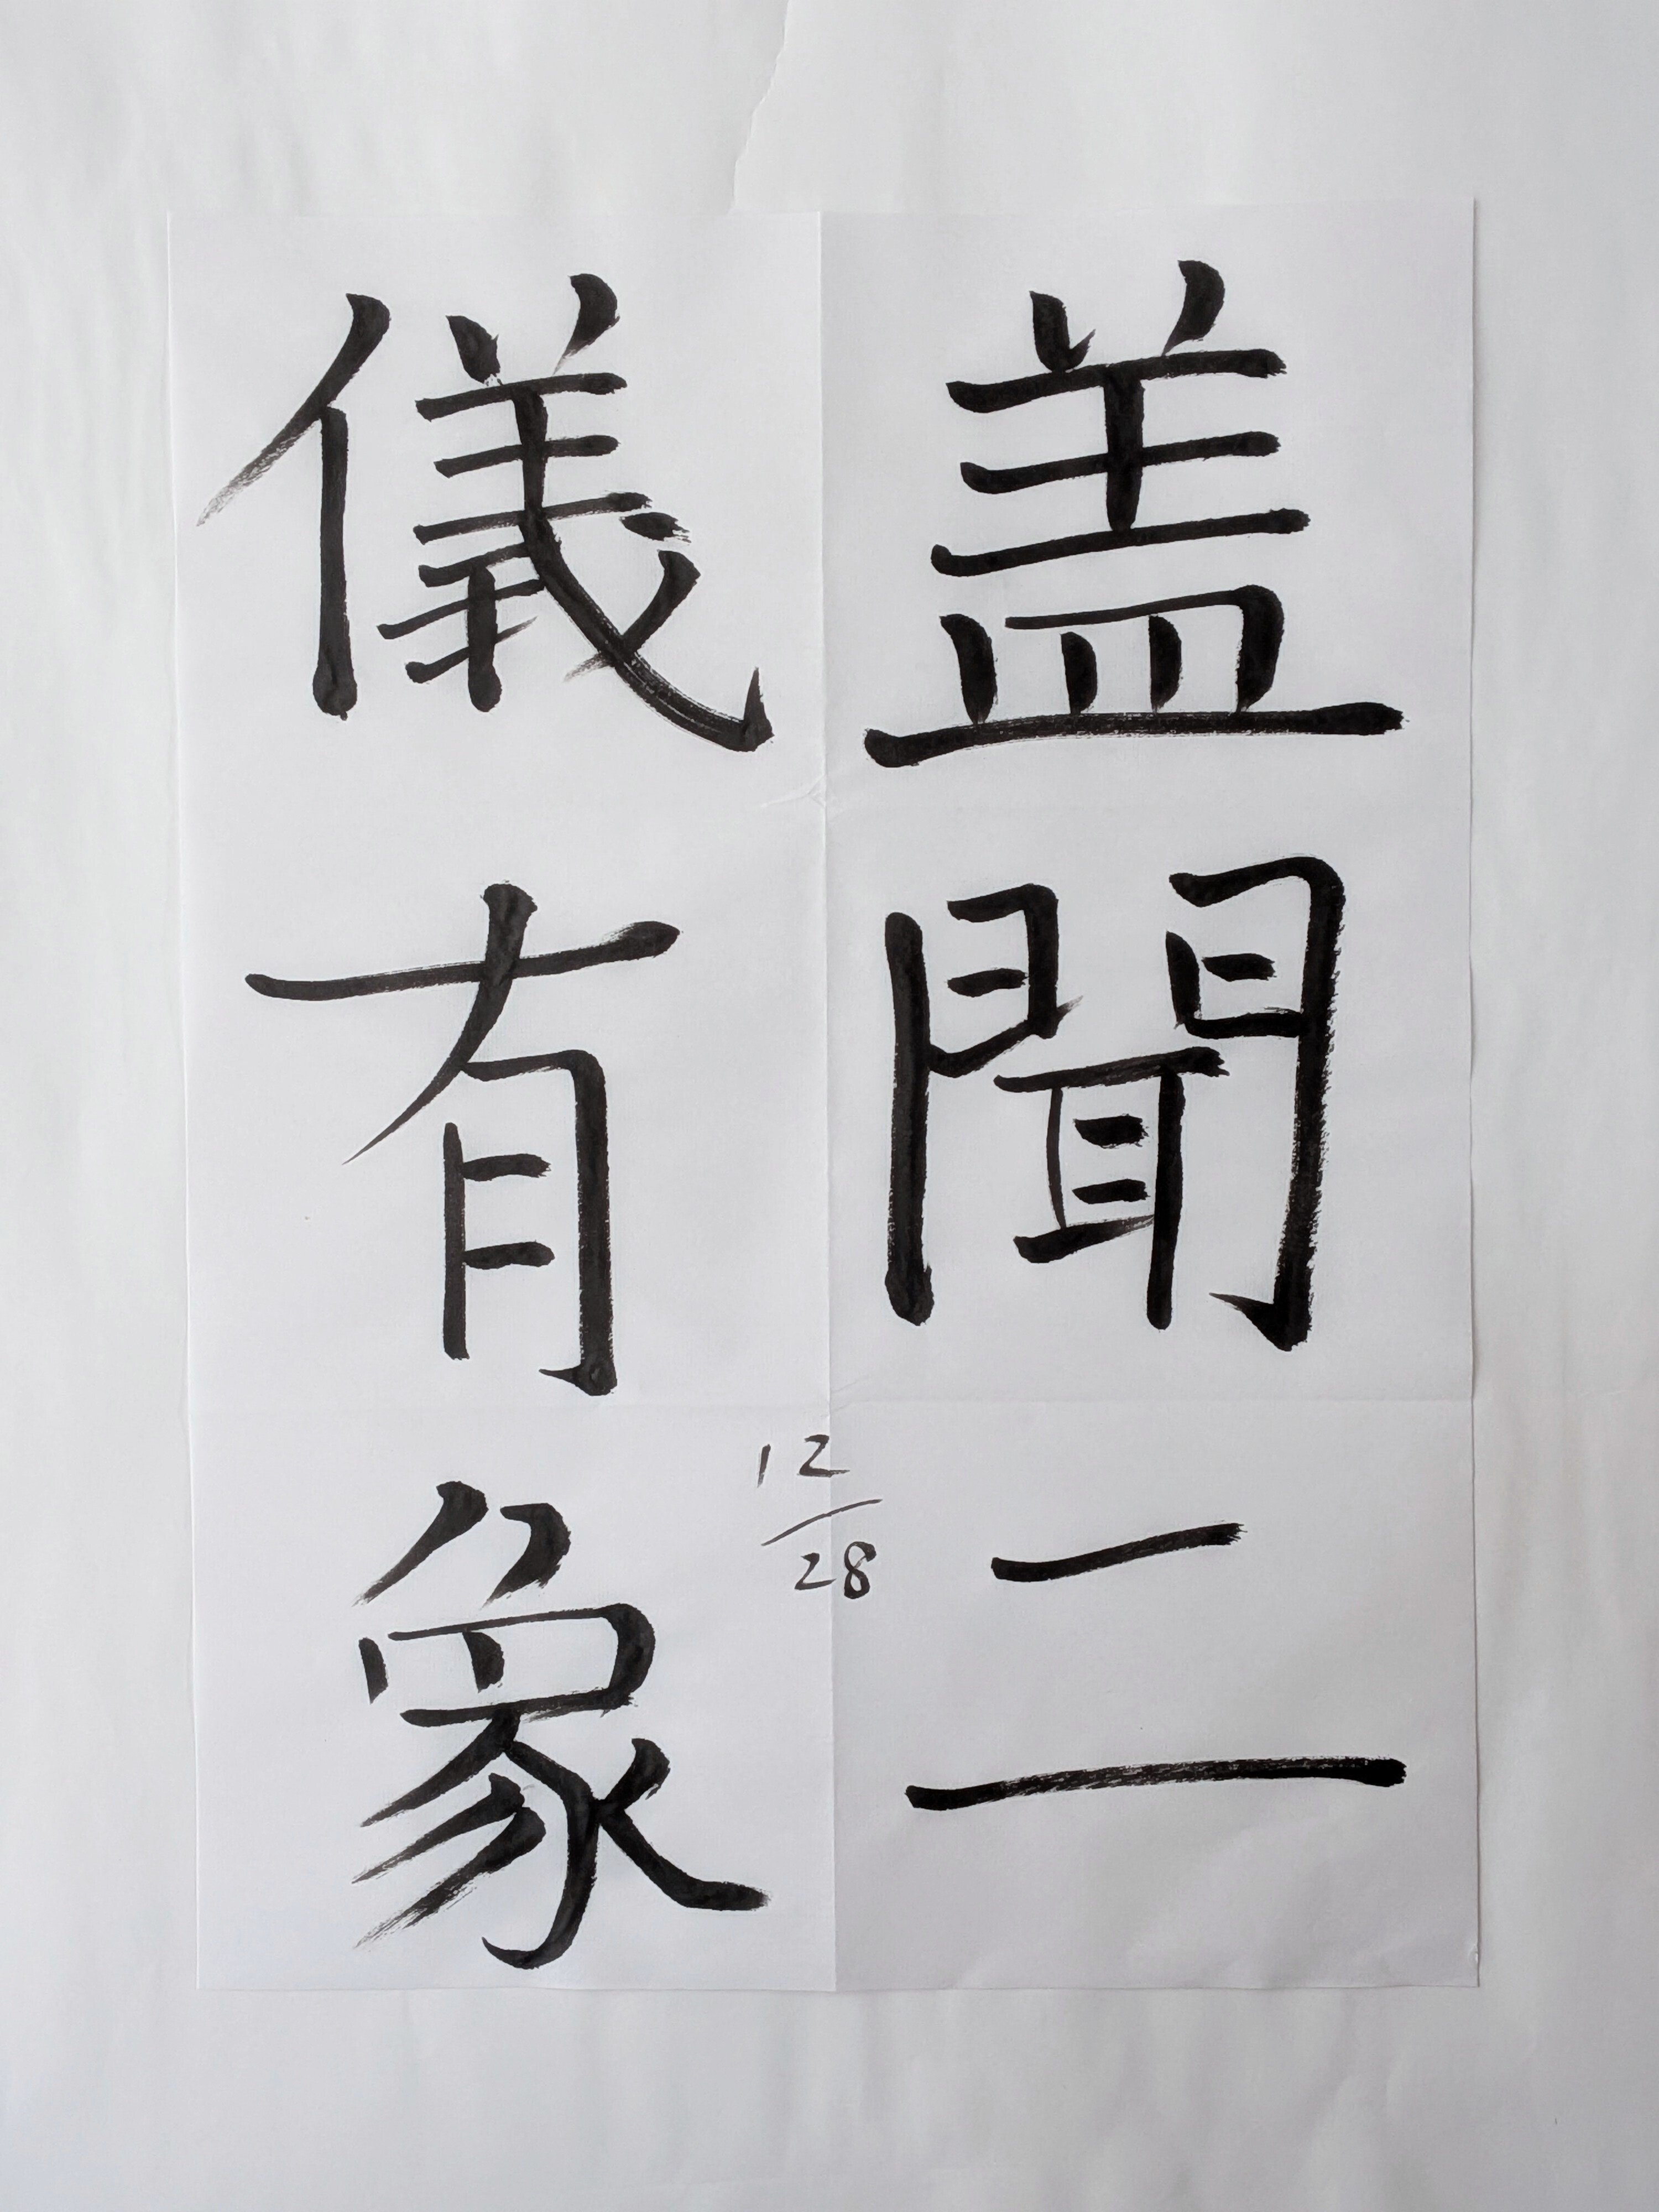 盖聞二
儀有象
12/28